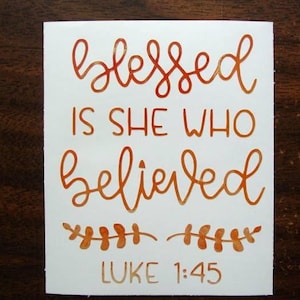 blessed
IS SHE WHO
believed
LUKE 1:45